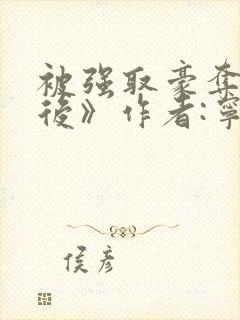 被强取豪夺
後》作者:寧
侯彦